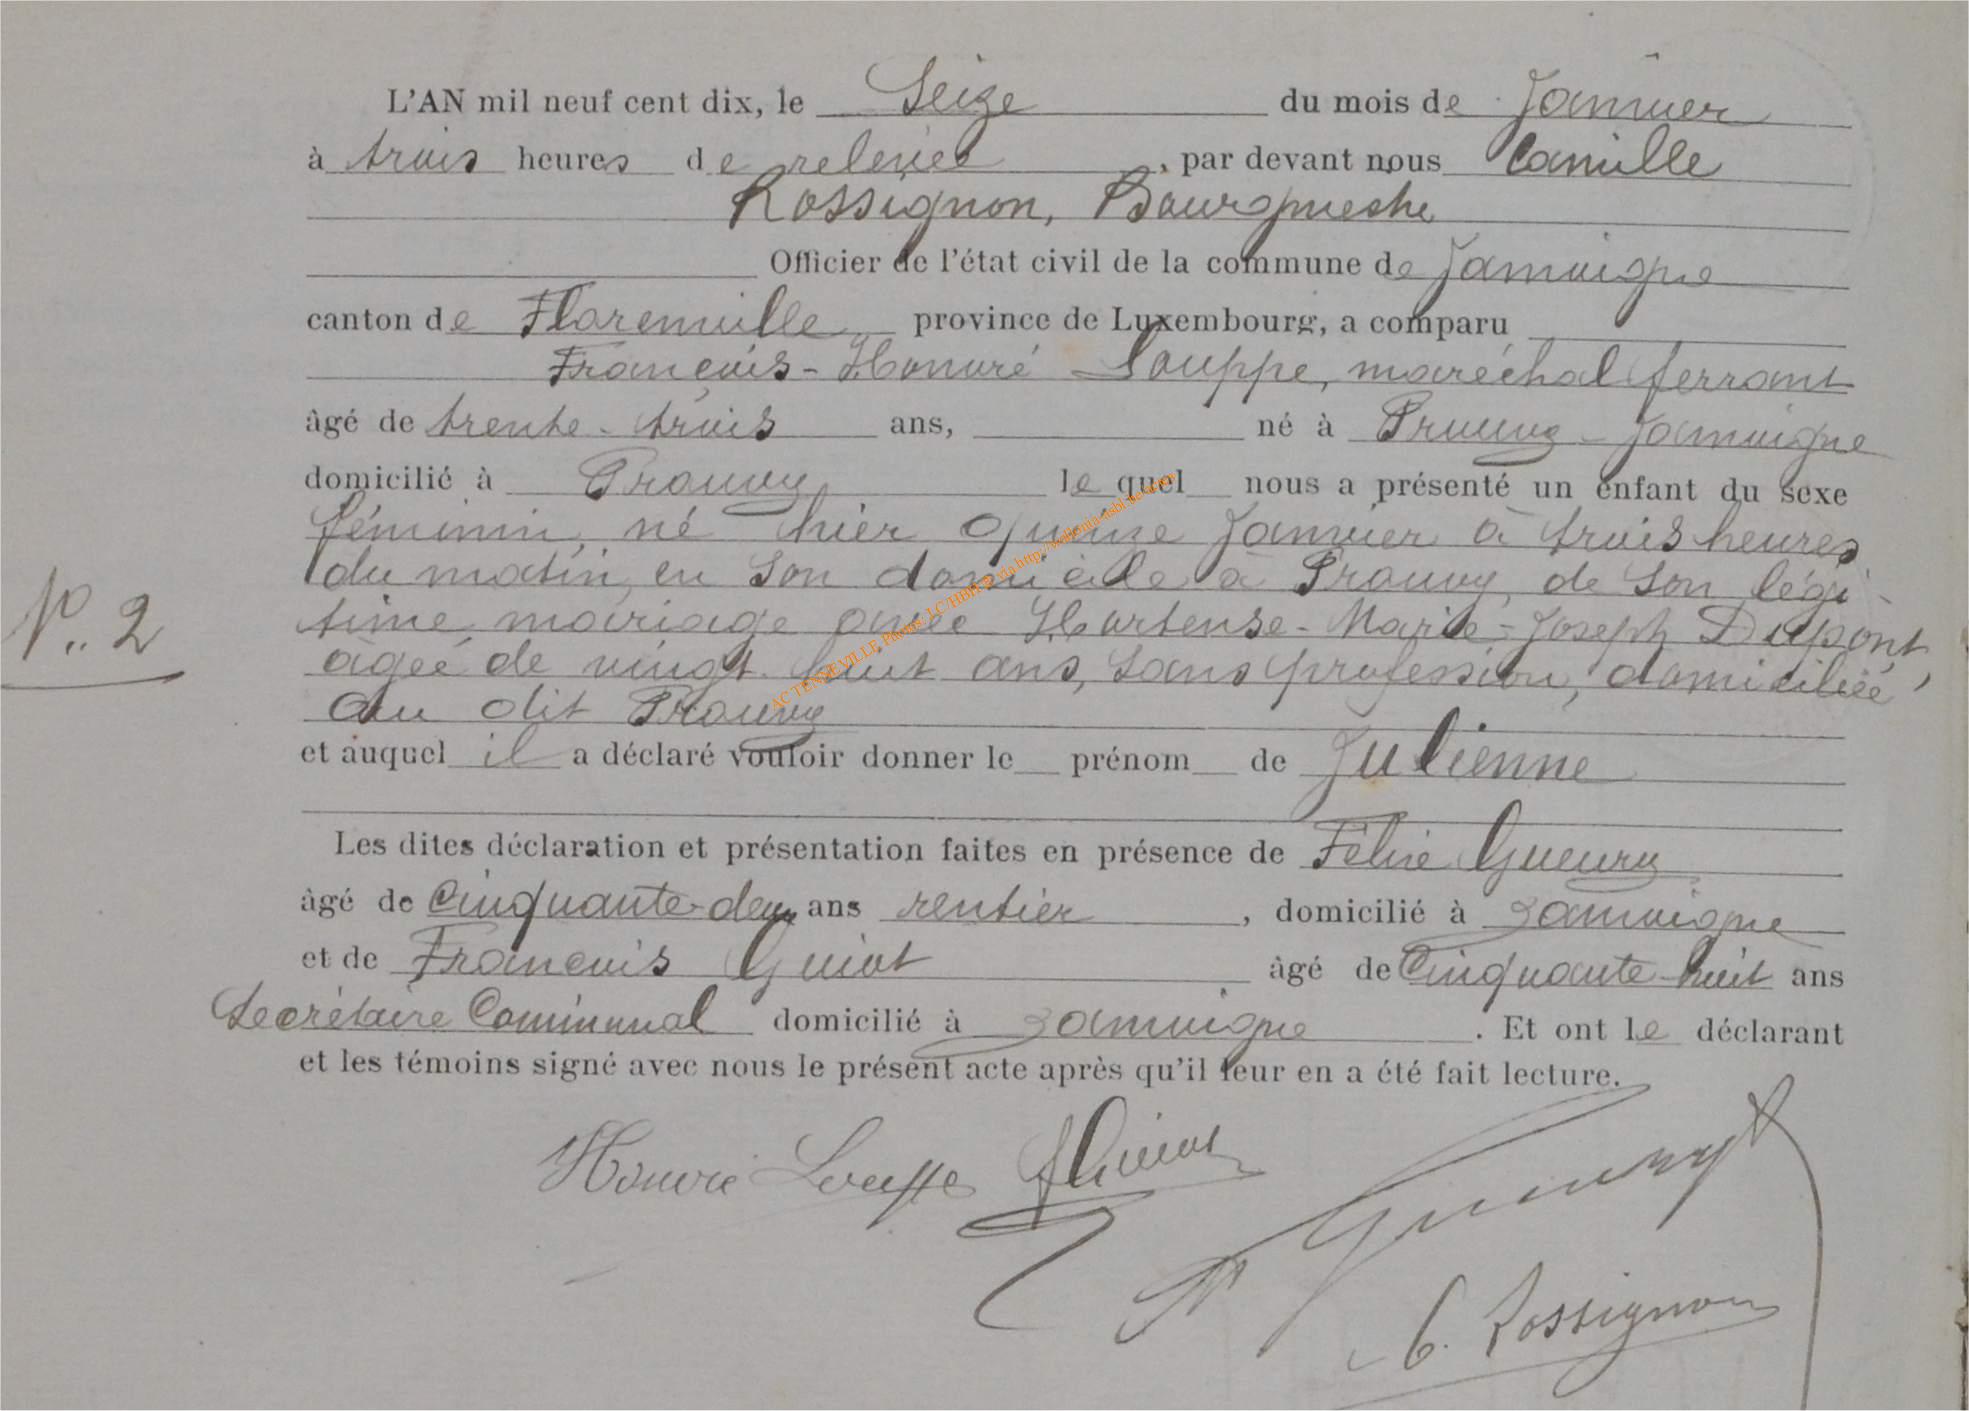 L'AN mil neuf cent dix, le Seize du mois de Janvier
à trois heures de relevée, par devant nous Camille
Rossignon, Bourgmestre
Officier de l'état civil de la commune de Jamoigne
canton de Florenville, province de Luxembourg, a comparu
François-Honoré Louppe, maréchal ferrant
âgé de trente-trois ans, né à Prouvy-Jamoigne
domicilié à Prouvy lequel nous a présenté un enfant du sexe
féminin, né hier quinze Janvier à trois heures
du matin, en son domicile à Prouvy, de son légi-
N° 2
time mariage avec Hortense-Marie-Joseph Dupont,
âgée de vingt-huit ans, sans profession, domiciliée
au dit Prouvy
et auquel il a déclaré vouloir donner le prénom de Julienne
Les dites déclaration et présentation faites en présence de Félix Gueury
âgé de Cinquante-deux ans rentier, domicilié à Jamoigne
et de François Guiot âgé de Cinquante-huit ans
Secrétaire Communal domicilié à Jamoigne. Et ont le déclarant
et les témoins signé avec nous le présent acte après qu'il leur en a été fait lecture.
Honoré Louppe F Guiot F Gueury
C. Rossignon